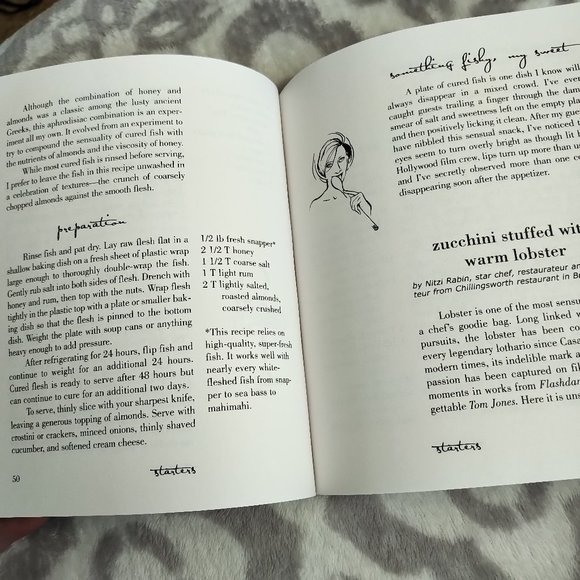 Although the combination of honey and
almonds was a classic among the lusty ancient
Greeks, this aphrodisiac combination is an exper-
iment all my own. It evolved from an experiment to
try to compound the sensuality of cured fish with
the nutrients of almonds and the viscosity of honey.
While most cured fish is rinsed before serving,
I prefer to leave the fish in this recipe unwashed in
a celebration of textures—the crunch of coarsely
chopped almonds against the smooth flesh.
preparation
Rinse fish and pat dry. Lay raw flesh flat in a
shallow baking dish on a fresh sheet of plastic wrap
large enough to thoroughly double-wrap the fish.
Gently rub salt into both sides of flesh. Drench with
honey and rum, then top with the nuts. Wrap flesh
tightly in the plastic top with a plate or smaller bak-
ing dish so that the flesh is pinned to the bottom
dish. Weight the plate with soup cans or anything
heavy enough to add pressure.
After refrigerating for 24 hours, flip fish and
continue to weight for an additional 24 hours.
Cured flesh is ready to serve after 48 hours but
can continue to cure for an additional two days.
To serve, thinly slice with your sharpest knife,
leaving a generous topping of almonds. Serve with
crostini or crackers, minced onions, thinly shaved
cucumber, and softened cream cheese.
1/2 lb fresh snapper*
2 1/2 T honey
1 1/2 T coarse salt
1 T light rum
2 T lightly salted,
roasted almonds,
coarsely crushed
*This recipe relies on
high-quality, super-fresh
fish. It works well with
nearly every white-
fleshed fish from snap-
per to sea bass to
mahimahi.
50
starters
something fishy, my sweet
A plate of cured fish is one dish I know will
always disappear in a mixed crowd. I've even
caught guests trailing a finger through the dam
smear of salt and sweetness left on the empty pla
and then positively licking it clean. After my gues
have nibbled this sensual snack, I've noticed t
eyes seem to turn overly bright as though lit b
Hollywood film crew, lips turn up more than us
and I've secretly observed more than one co
disappearing soon after the appetizer.
zucchini stuffed wit
warm lobster
by Nitzi Rabin, star chef, restaurateur an
teur from Chillingsworth restaurant in B
Lobster is one of the most sensu
a chef's goodie bag. Long linked w
pursuits, the lobster has been co
every legendary lothario since Casa
modern times, its indelible mark a
passion has been captured on fil
moments in works from Flashda
gettable Tom Jones. Here it is uns
starters